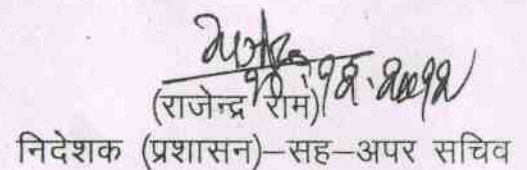 (राजेन्द्र राम)
निदेशक (प्रशासन)–सह–अपर सचिव